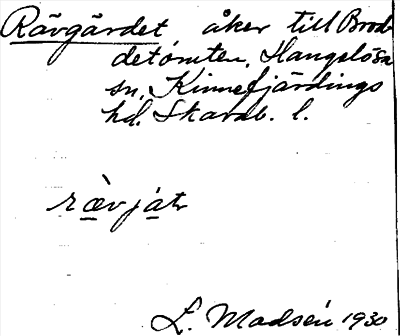 Rävgärdet, åker till Brod-
detomten, Hangelösa
sn, Kinnefjärdings
hd. Skarab. l.
rävjät
L. Madsén 1930